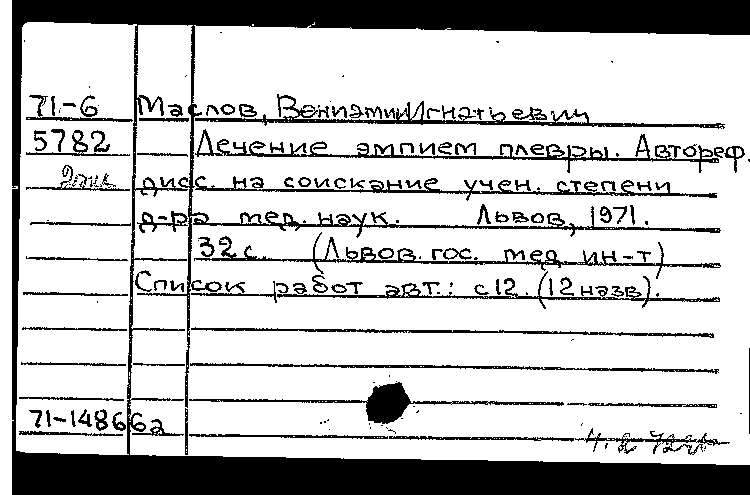 71-6 Маслов, Вениамин Игнатьевич
5782 Лечение эмпием плевры. Автореф.
дисс. на соискание учен. степени
д-ра мед. наук. Львов, 1971.
32 с. (Львов. гос. мед. ин-т)
Список работ авт.: с 12. (12 назв).
71-14866а